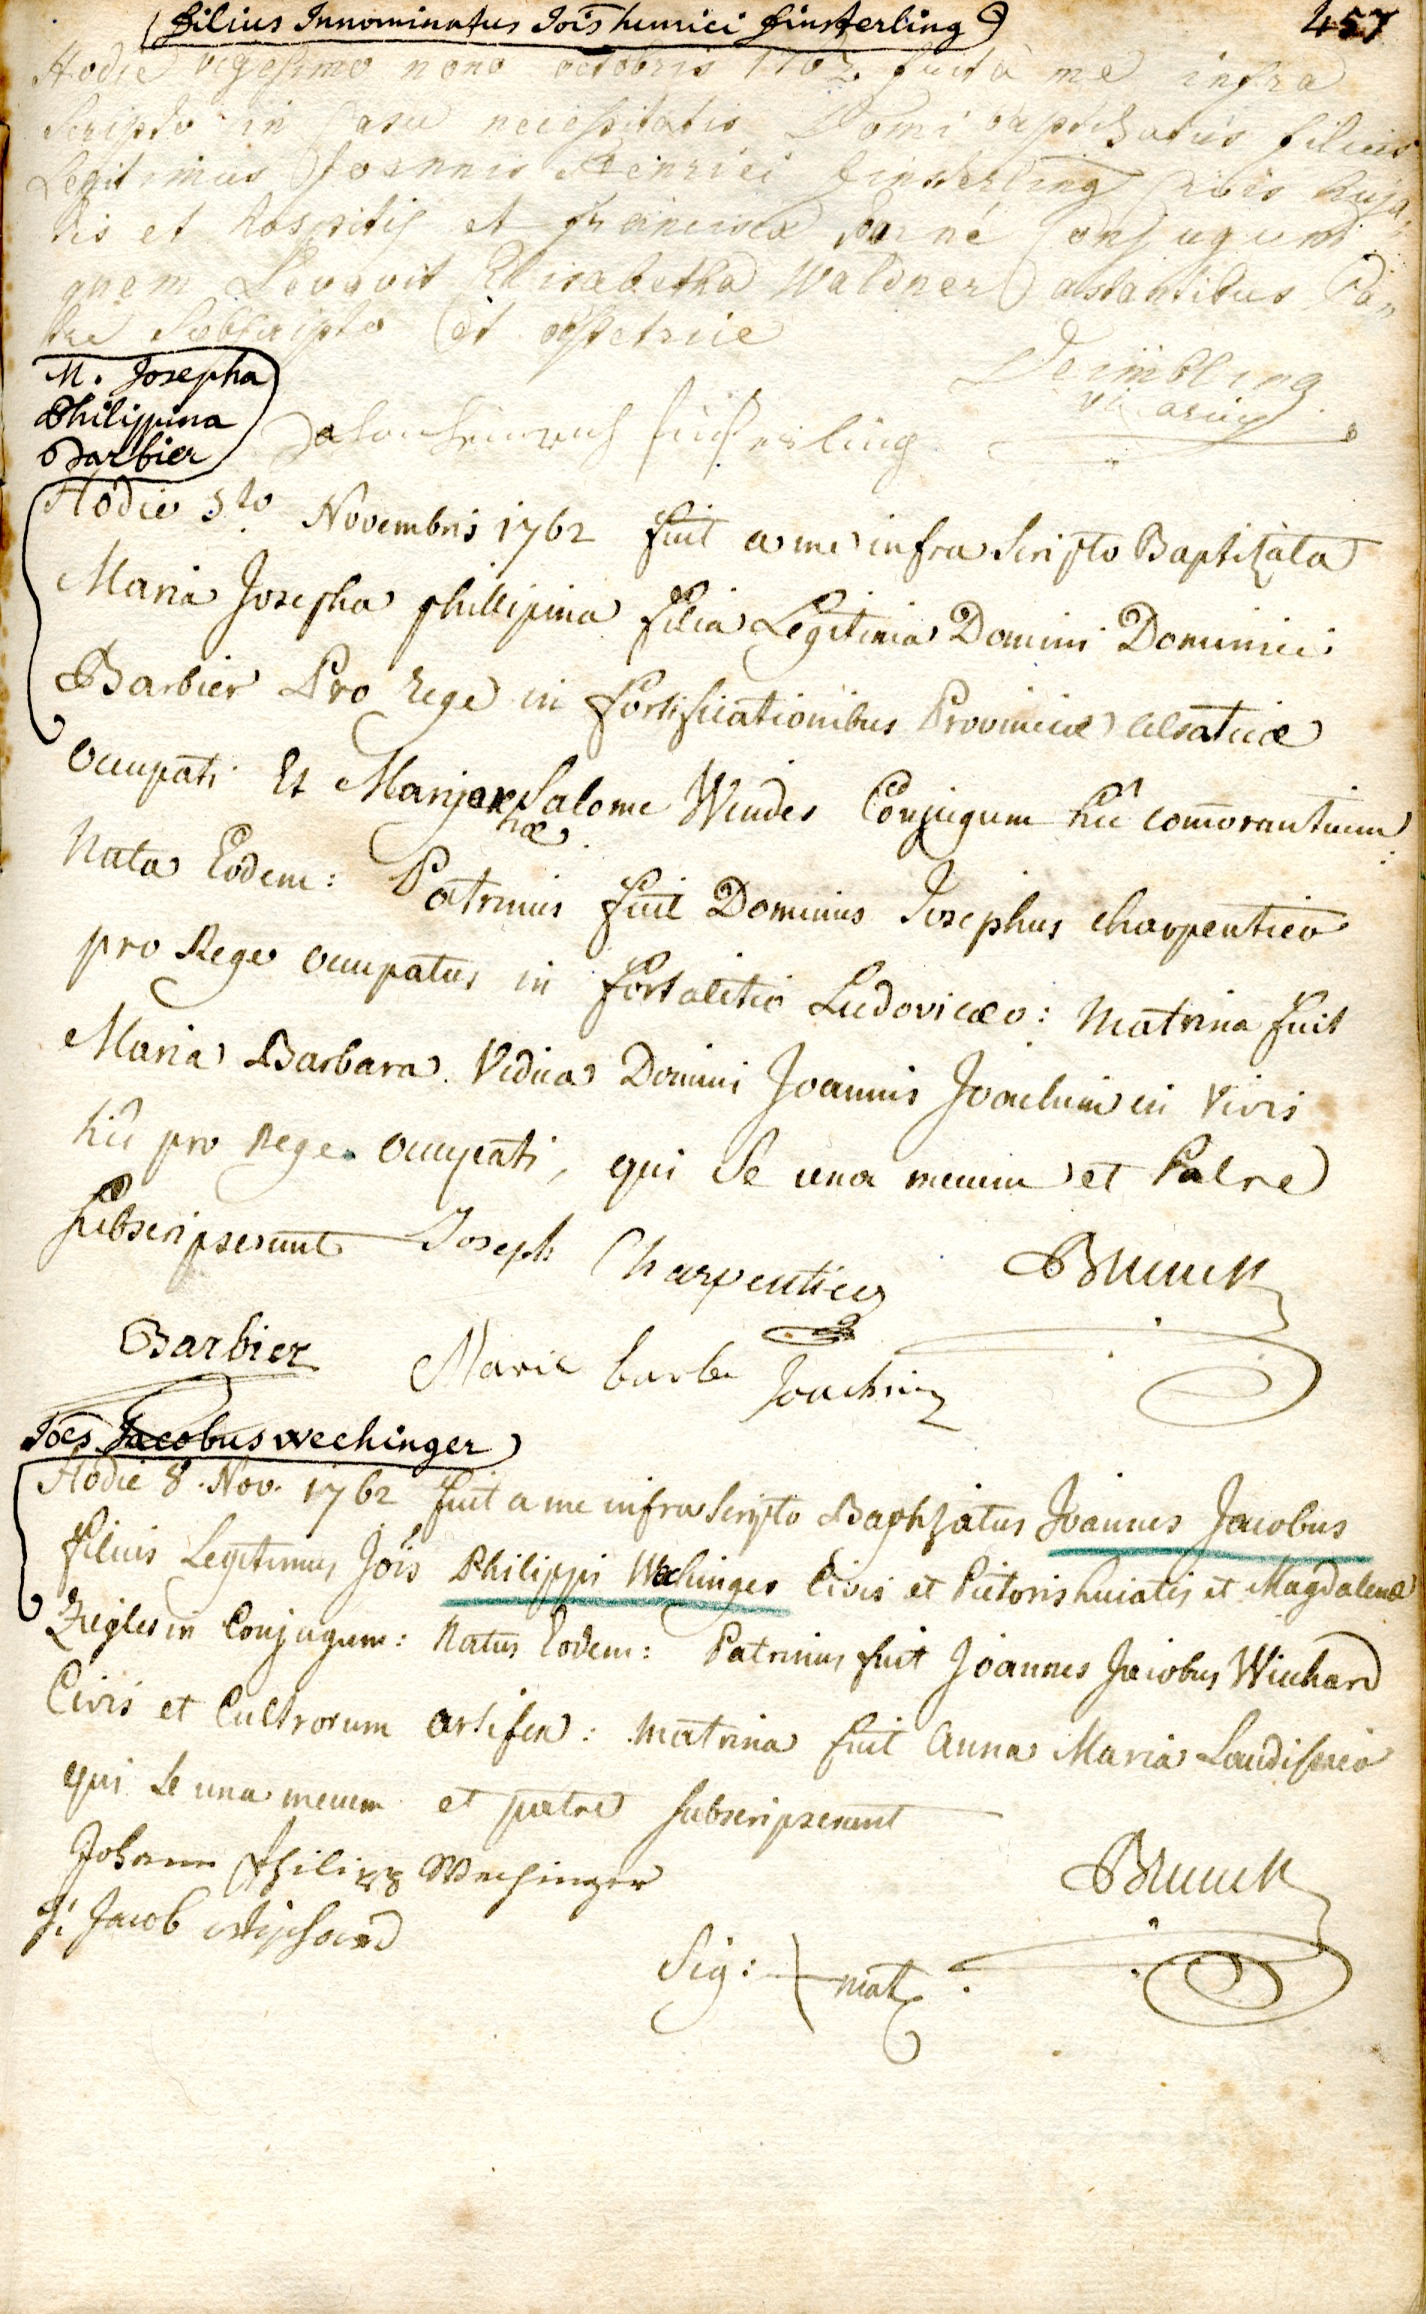 (filius Innominatus Jois henrici finsterling) 457
Hodie vigesimo nono octobris 1762 fuit à me infra
Scripto in Casu necessitatis Domi baptizatus filius
Legitimus Joannis Henrici finsterling Civis huja-
tis et hospitis et franciscæ Conjugum
quem Levavit Elisabetha Waldner astantibus Pa-
tre Subscripto et obstetrice
vicarius
M. Josepha
Philippina
Barbier
Hodie 5to Novembris 1762 fuit a me infra Scripto Baptizata
Maria Josepha phillipina filia Legitima Domini Dominici
Barbier Pro Rege in fortificationibus Provinciæ alsatiæ
occupati Et Mariæ Salome Wendes Conjugum hic com̄orantium
Nata Eodem: Patrinus fuit Dominus Josephus charpentier
pro Rege occupatus in fortalitio Ludoviceo: Matrina fuit
Maria Barbara Vidua Domini Joannis Joachim in vivis
hic pro Rege occupati, qui Se una mecum et Patre
Subscripserunt Joseph Charpentier Brunck
Barbier Marie barbe Joachim
Joes Jacobus wechinger
Hodie 8. Nov. 1762 fuit a me infra Scripto Baptizatus Joannes Jacobus
filius Legitimus Jois Philippi Wechinger Civis et Pictoris huiatis et Magdalenæ
Zieglerin Conjugum: Natus Eodem: Patrinus fuit Joannes Jacobus Wichard
Civis et Cultrorum artifex: Matrina fuit anna Maria
qui Se una mecum et patre Subscripserunt
Johann Philipp Wechinger Brunck
J: Jacob
Sig: + mat.